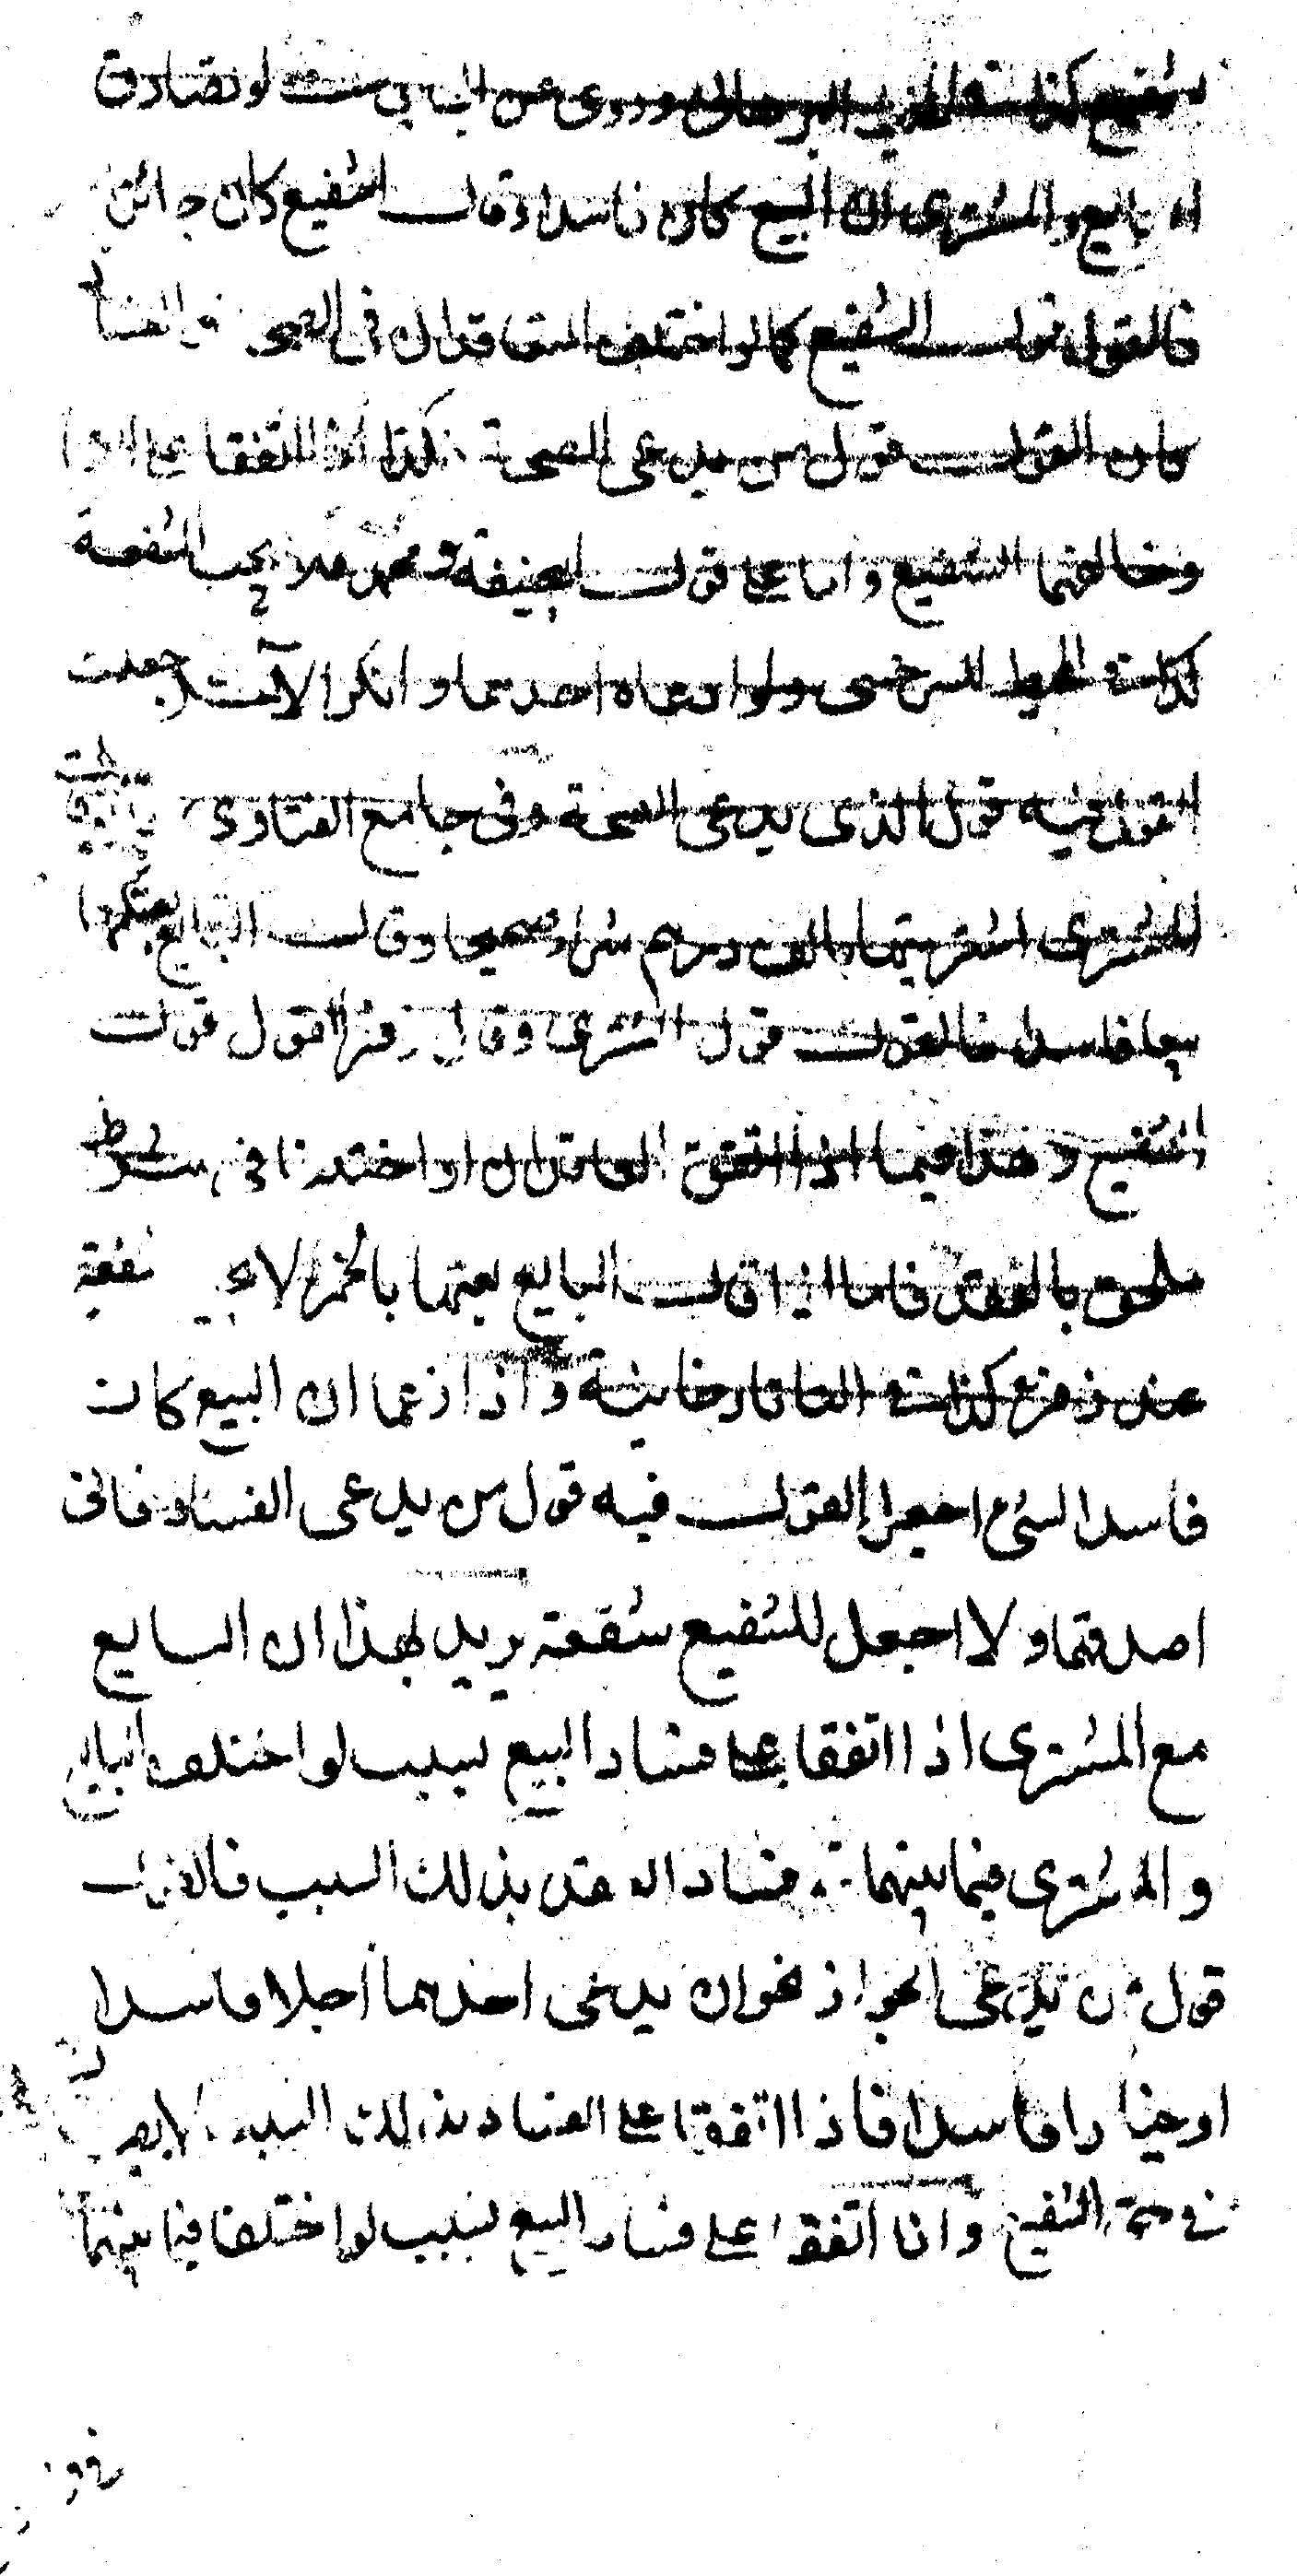 شفيع كذا في محيط البرهاني وروى عن الثاني لو تصادق
البايع والمشترى ان البيع كان فاسدا وقال الشفيع كان جائزا
فالقول قول الشفيع كما لو اختلف المتعاقدان في الصحة والفساد
كان القول قول من يدعى الصحة كذا اذا اتفقا على
وخالفهما الشفيع واما على قول ابيحنيفة ومحمد فلا يجب الشفعة
كذا في المحيط للسرخسى ولو ادعاه احدهما وانكر الآخر جعلت
القول فيه قول الذى يدعى الصحة وفى جامع الفتاوى
المشترى اشتريتها بالف درهم شراء صحيحا وقال البايع بعتكها
بيعا فاسدا فالقول قول المشترى وقال زفر القول قول
الشفيع وهذا فيما اذا اتفق العاقدان او اختلفا في شرط
ملحق بالعقد فاما اذا قال البايع بعتها بالخمر لا شفعة
عند زفر كذا في التاتارخانية واذا زعما ان البيع كان
فاسدا لشئ اجعل القول فيه قول من يدعى الفساد فانى
اصدقهما ولا اجعل للشفيع شفعة يريد بهذا ان البايع
مع المشترى اذا اتفقا على فساد البيع بسبب لو اختلف البايع
والمشترى فيما بينهما فساد العقد بذلك السبب فالقول
قول من يدعى الجواز نحو ان يدعى احدهما اجلا فاسدا
او خيارا فاسدا فاذا اتفقا على الفساد بذلك السبب لا
في حق الشفيع وان اتفقا على فساد البيع بسبب لو اختلفا فيما بينهما